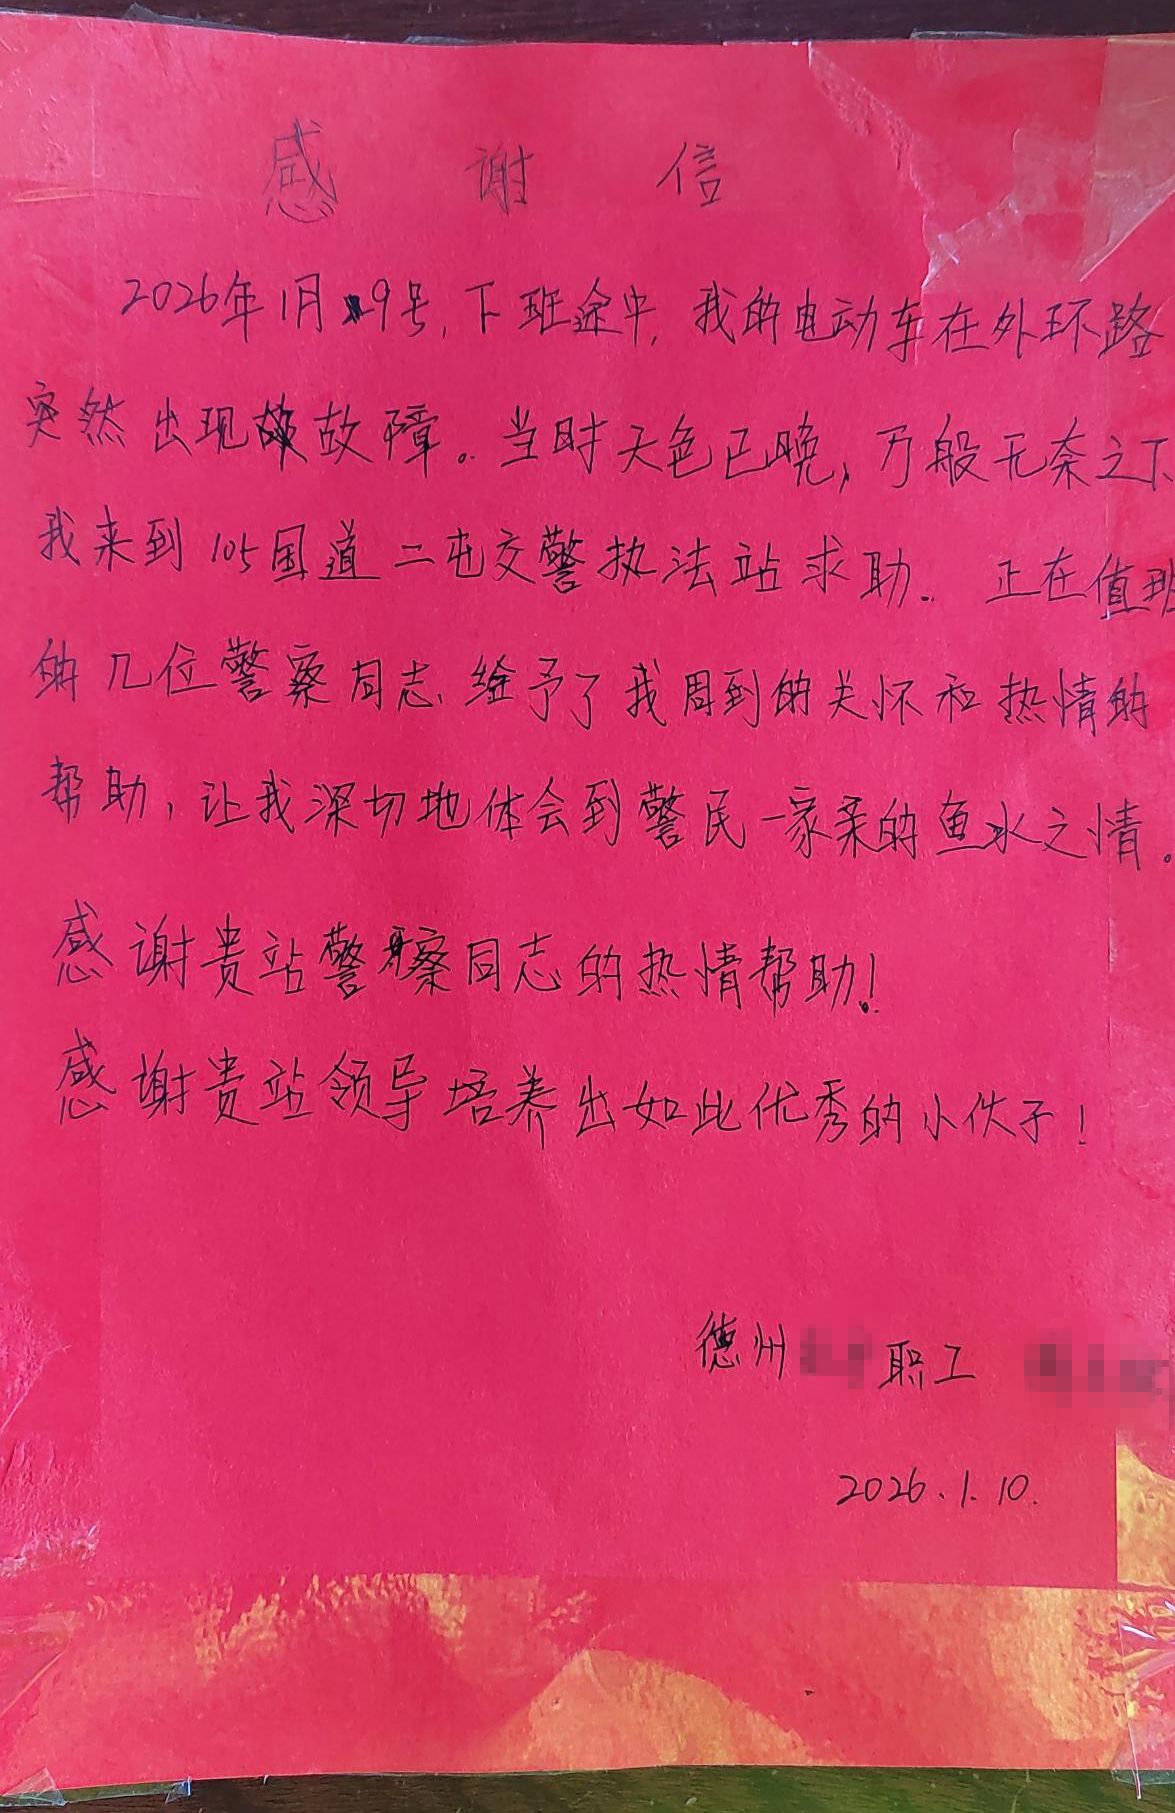 感谢信
2026年1月9号,下班途中,我的电动车在外环路
突然出现故障。当时天色已晚,万般无奈之下
我来到105国道二屯交警执法站求助. 正在值班
的几位警察同志、给予了我周到的关怀和热情的
帮助,让我深切地体会到警民一家亲的鱼水之情。
感谢贵站警察同志的热情帮助!
感谢贵站领导培养出如此优秀的小伙子!
德州 职工
2026.1.10.